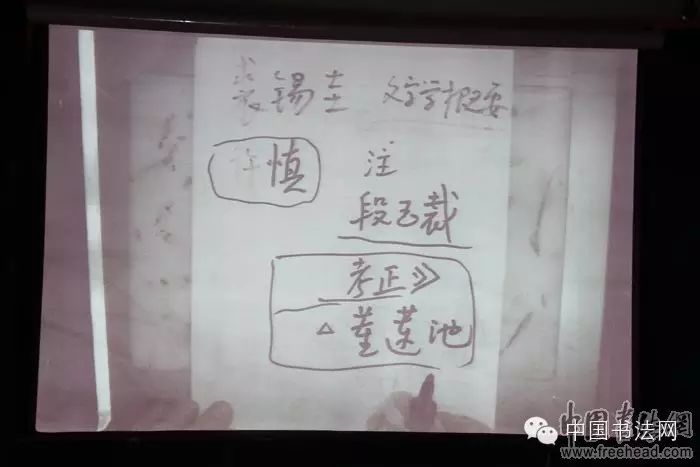 裘锡圭 文字学概要
许慎 注
段玉裁
考正》
△董莲池
中国书法网
中国书法网
www.freehead.com